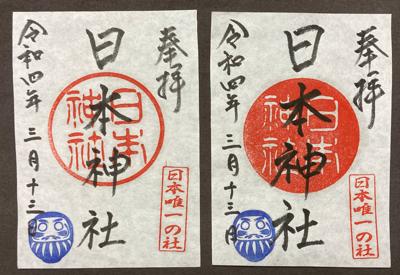 奉拝
日本神社
日本神社
令和四年 三月十三日
日本唯一の社
奉拝
日本神社
日本神社
令和四年 三月十三日
日本唯一の社